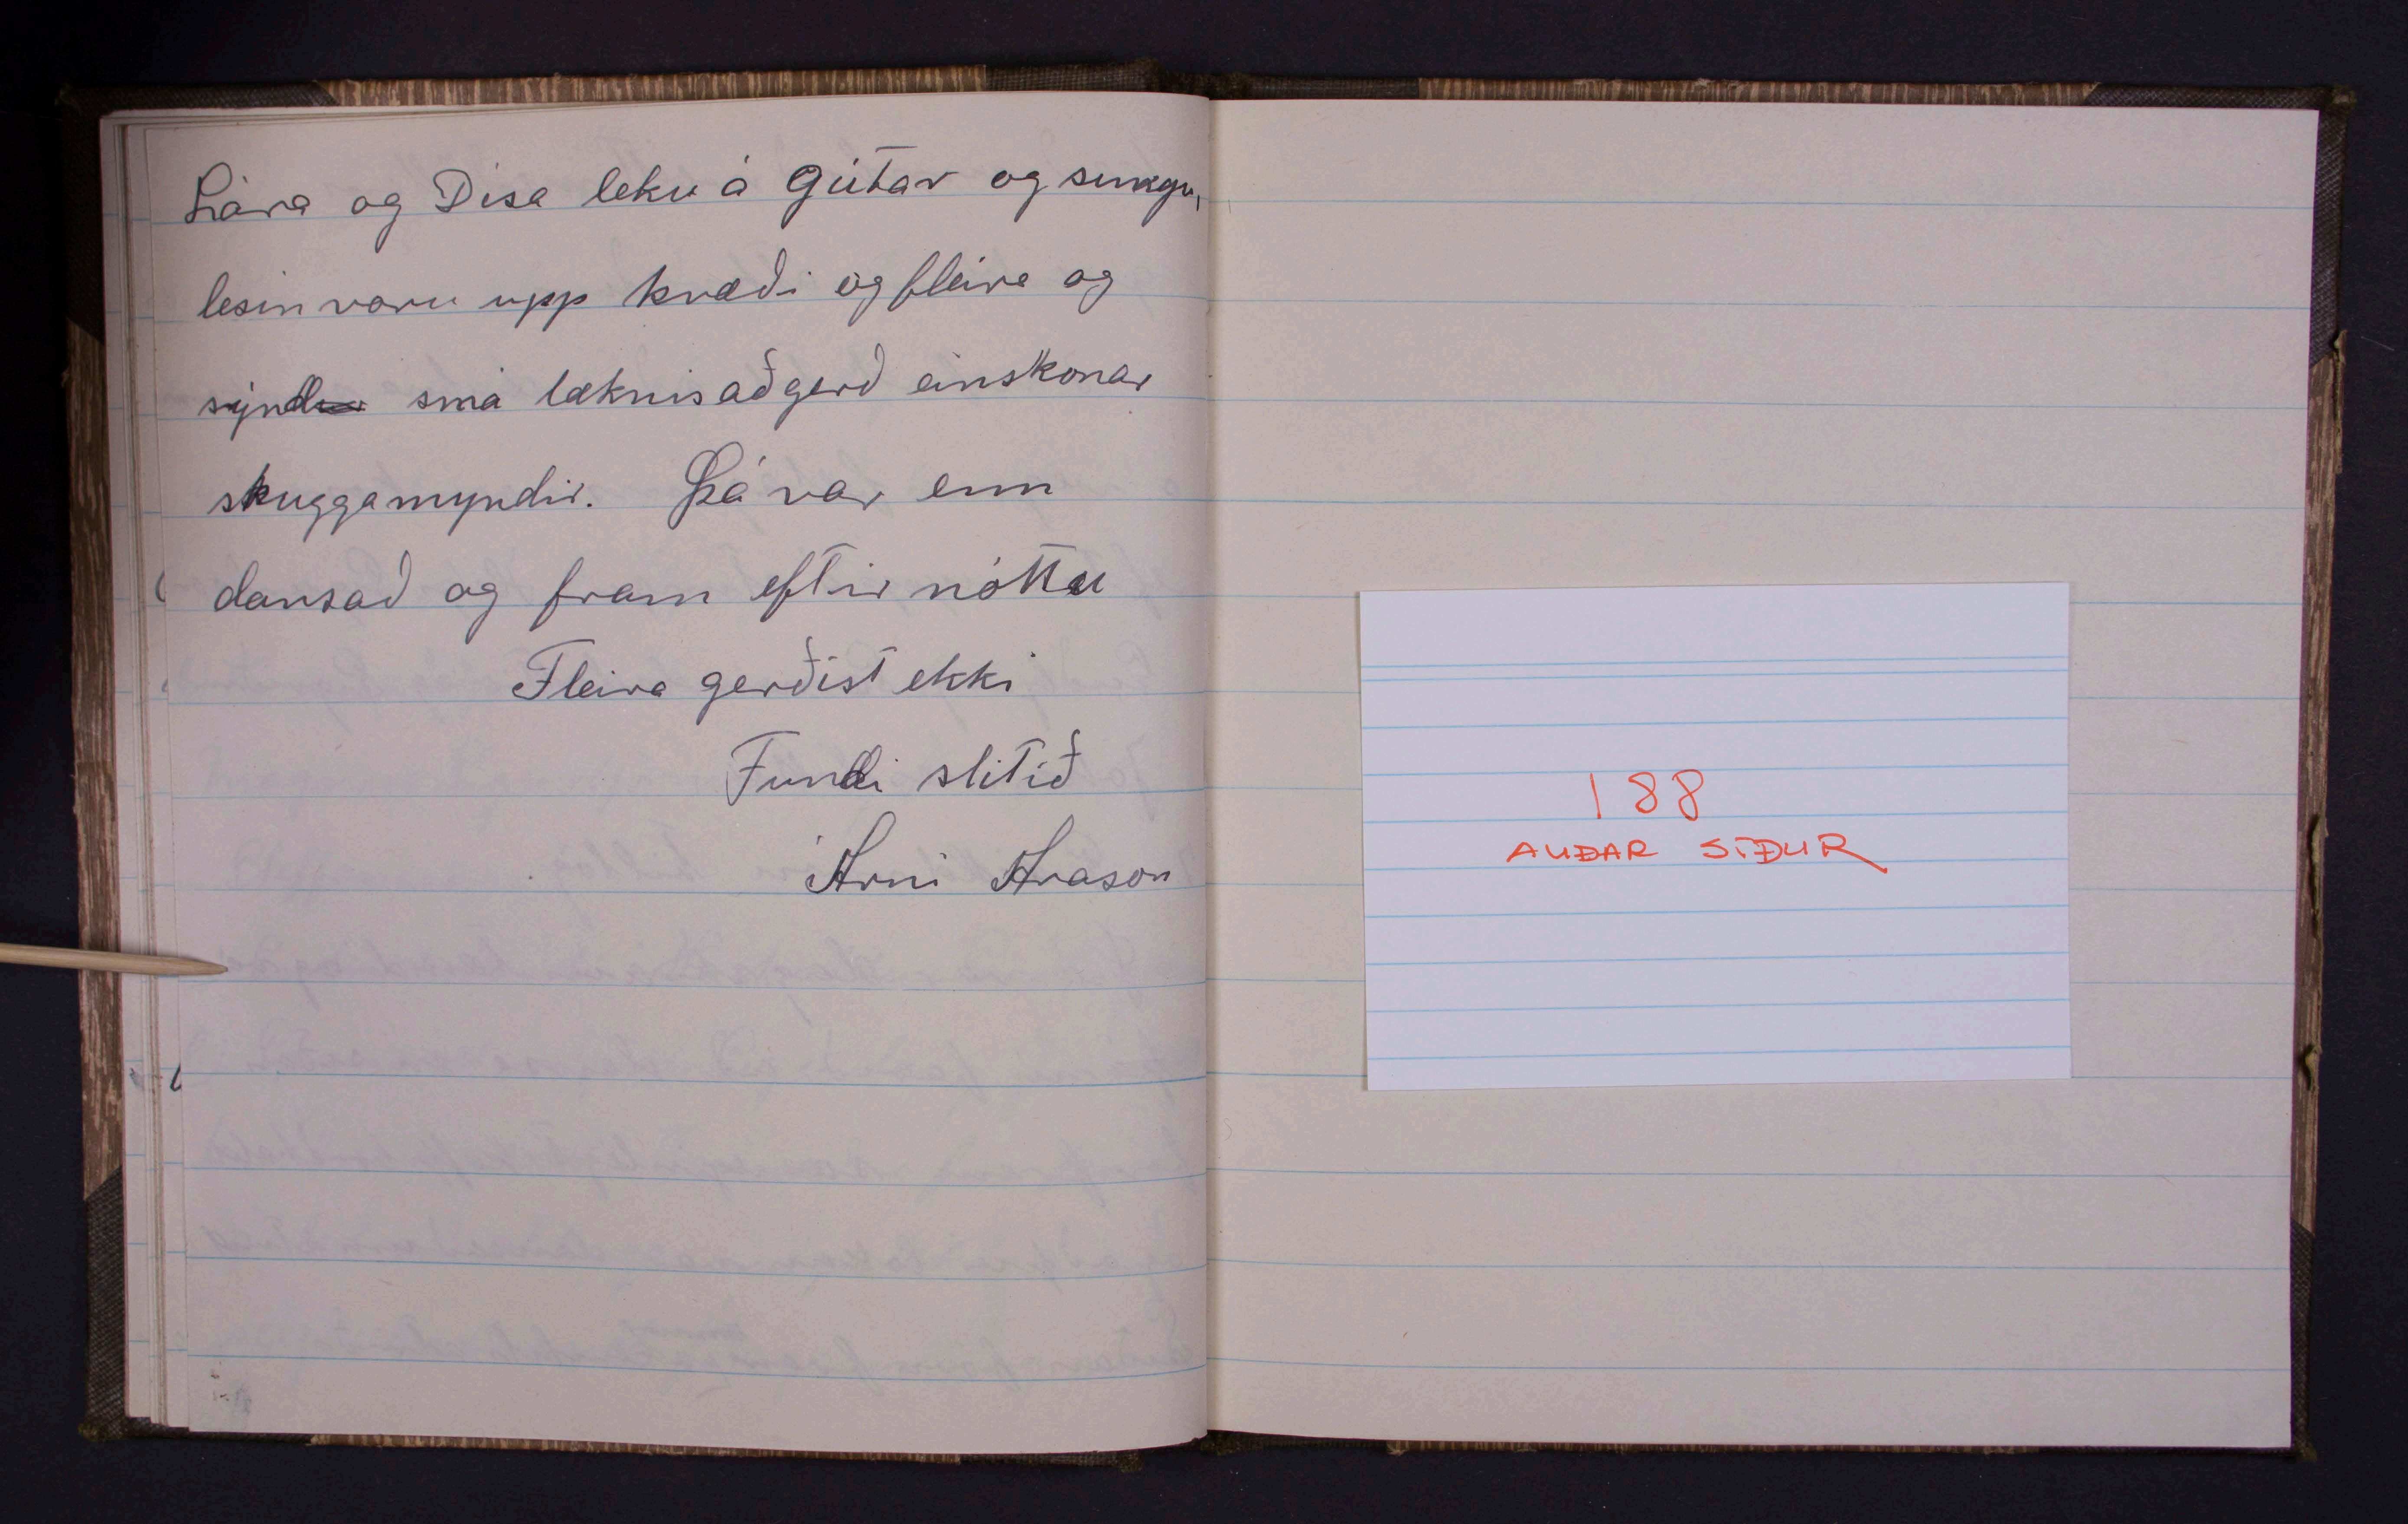 Lára og Dísa leku á gítar og sungu,
lesin voru upp kvæði og fleira og
sýnd smá læknisaðgerð einskonar
skuggamyndir. Þá var enn
dansað og fram eftir nóttu
Fleira gerðist ekki
Fundi slitið
Árni Arason
188
AUÐAR SÍÐUR